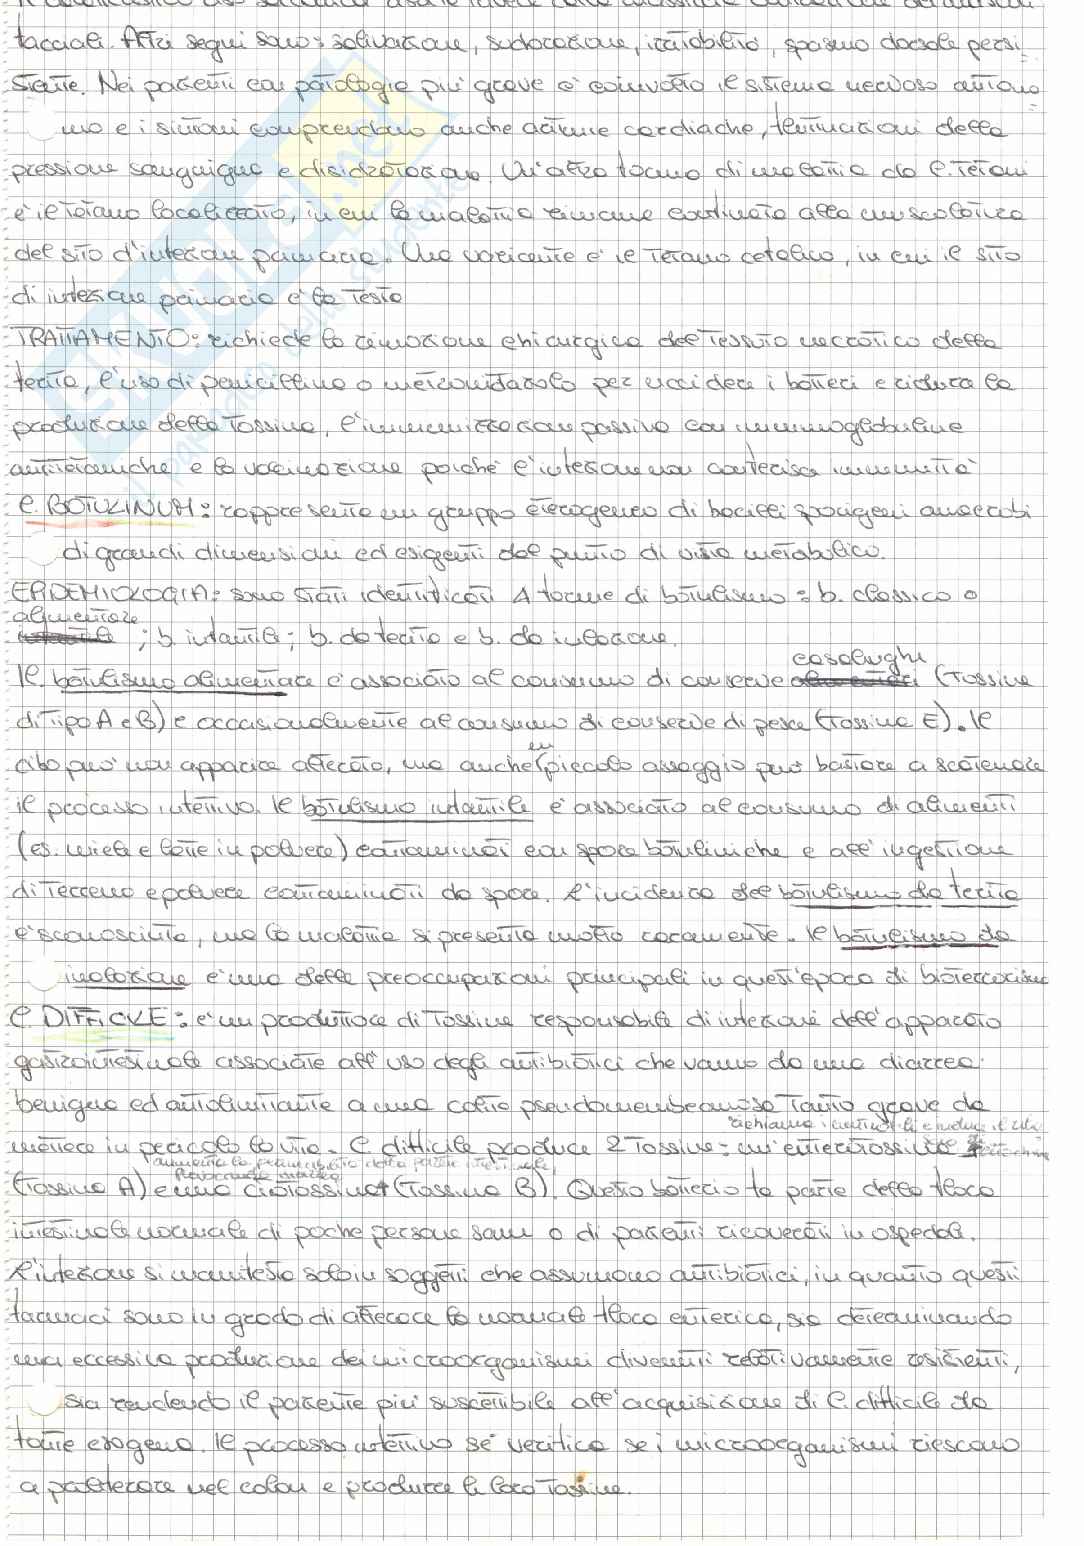 facciali. Altri segni sono: salivazione, sudorazione, irritabilità, spasmo dorsale persi-
stente. Nei pazienti con patologia più grave è coinvolto il sistema nervoso autono-
mo e i sintomi comprendono anche aritmie cardiache, fluttuazioni della
pressione sanguigna e disidratazione. Un'altra forma di malattia da C. Tetani
è il tetano localizzato, in cui la malattia rimane confinata alla muscolatura
del sito d'infezione primaria. Una variante è il tetano cefalico, in cui il sito
di infezione primario è la testa
TRATTAMENTO: richiede la rimozione chirurgica del tessuto necrotico della
ferita, l'uso di penicillina o metronidazolo per uccidere i batteri e ridurre la
produzione della tossina, l'immunizzazione passiva con immunoglobuline
antitetaniche e la vaccinazione poiché l'infezione non conferisce immunità
C. BOTULINUM: rappresenta un gruppo eterogeneo di bacilli sporigeni anaerobi
di grandi dimensioni ed esigenti dal punto di vista metabolico.
EPIDEMIOLOGIA: sono stati identificati 4 forme di botulismo: b. classico o
alimentare
; b. infantile; b. da ferita e b. da inalazione.
casalinghi
Il botulismo alimentare è associato al consumo di conserve (tossine
di tipo A e B) e occasionalmente al consumo di conserve di pesce (tossina E). Il
un
cibo può non apparire alterato, ma anche piccolo assaggio può bastare a scatenare
il processo infettivo. Il botulismo infantile è associato al consumo di alimenti
(es. miele e latte in polvere) contaminati con spore botuliniche e all'ingestione
di terreno e polvere contaminati da spore. L'incidenza del botulismo da ferita
è sconosciuta, ma la malattia si presenta molto raramente. Il botulismo da
inalazione è una delle preoccupazioni principali in quest'epoca di bioterrorismo
C. DIFFICILE: è un produttore di tossine responsabile di infezioni dell'apparato
gastrointestinale associate all'uso degli antibiotici che vanno da una diarrea
benigna ed autolimitante a una colite pseudomembranosa tanto grave da
richiama i neutrofili e induce il rila
mettere in pericolo la vita. C. difficile produce 2 tossine: un'enterotossina
aumenta la permeabilità della parete intestinale,
provocando diarrea
(tossina A) e una citotossina (tossina B). Questo batterio fa parte della flora
intestinale normale di poche persone sane o di pazienti ricoverati in ospedale.
L'infezione si manifesta solo in soggetti che assumono antibiotici, in quanto questi
farmaci sono in grado di alterare la normale flora enterica, sia determinando
una eccessiva produzione dei microorganismi divenuti relativamente resistenti,
sia rendendo il paziente più suscettibile all'acquisizione di C. difficile da
fonte esogena. Il processo infettivo se verifica se i microorganismi riescono
a proliferare nel colon e produrre le loro tossine.